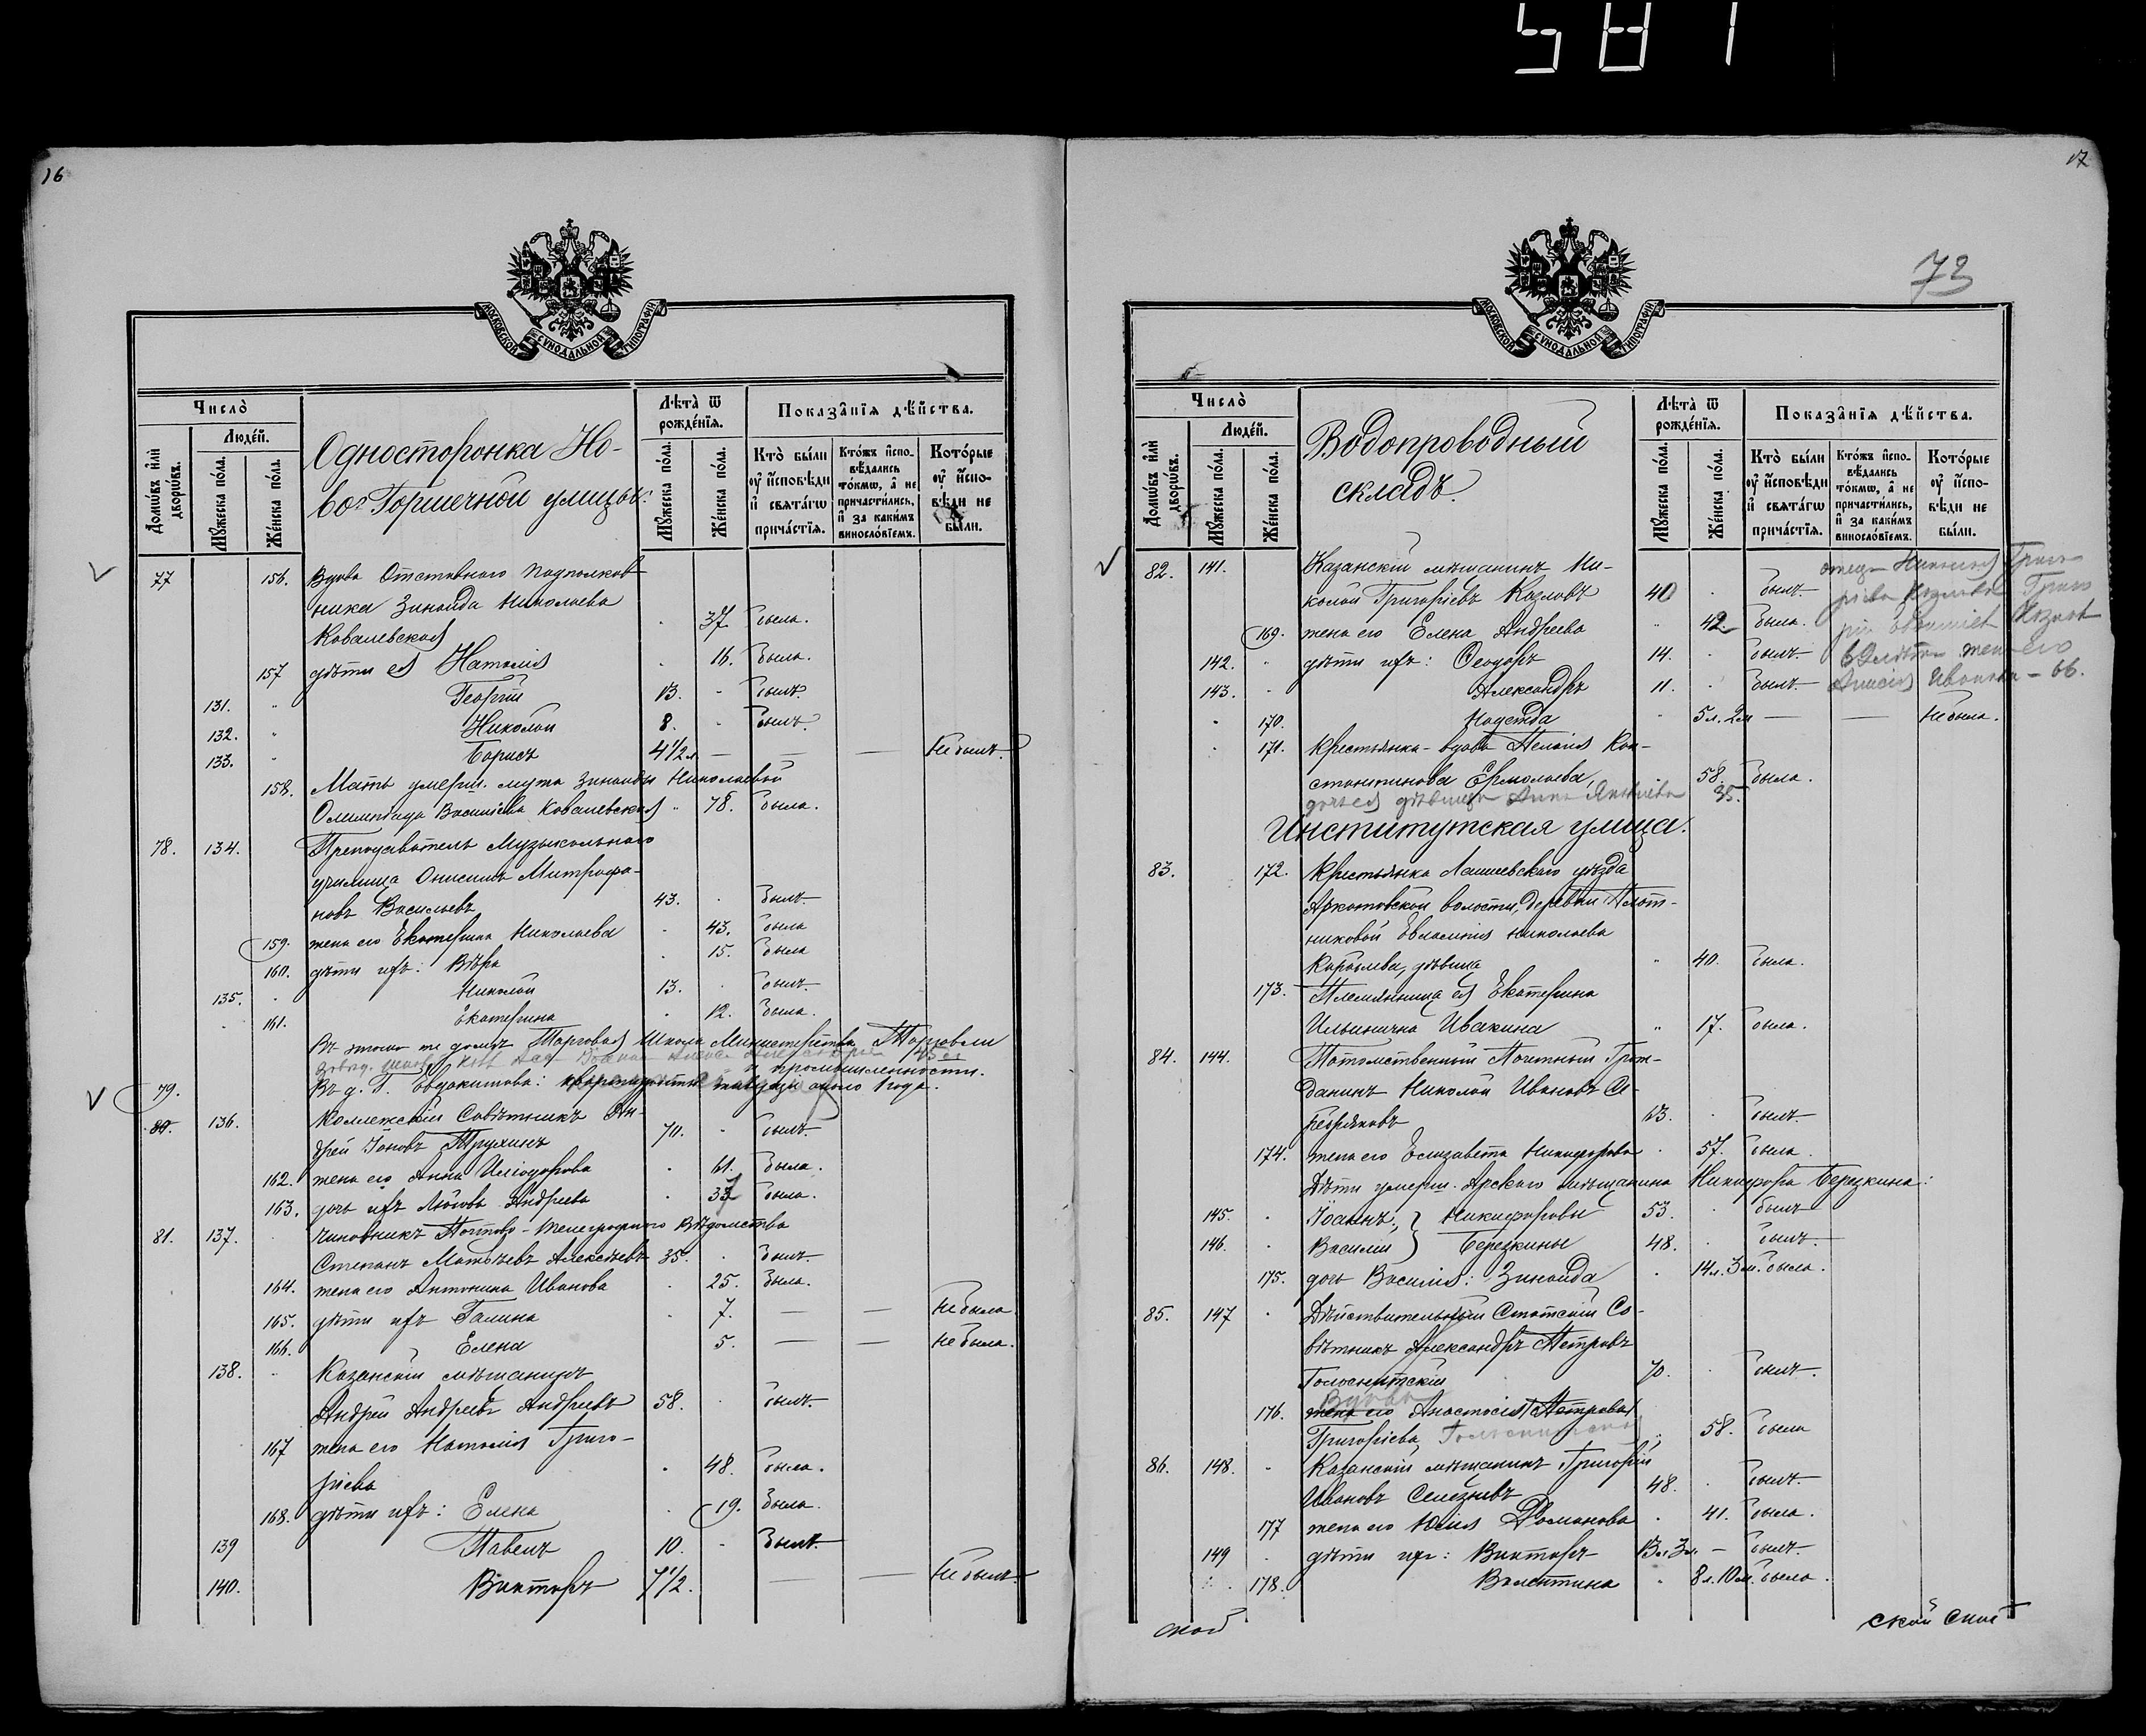 581
16
МОСКОВСКОЙ СѴНОДАЛЬНОЙ ТИПОГРАФІИ
Число̀
Людей.
Домѡвъ и҆лѝ дворѡвъ.
Мꙋжеска по́ла.
Же́нска по́ла.
Односторонка Но-
во-Горшечной улицы:
Лѣта̀ ѿ рожде́нїѧ.
Мꙋжеска по́ла.
Же́нска по́ла.
Показа̑нїѧ дѣ́йства.
Кто̀ бы́ли оу҆ и҆сповѣди и҆ свѧта́гѡ прича́стїѧ.
Кто́жъ и҆спо-вѣдались то́кмѡ, а҆ не причасти́лись, и҆ за каки́мъ винослов́їемъ.
Кото́рые оу҆ и҆спо-вѣди не бы́ли.
77 156. Вдова Отставного Подполков-
ника Зинаида Николаева
Ковалевская 37 была.
157 дѣти ея Наталія 16. была.
131. Георгій 13. былъ.
132. Николай 8. былъ.
133. Борисъ 4 1/2 л. — — Не былъ.
158. Мать умерш. мужа Зинаиды Николаевой
Олимпіада Васильева Ковалевская 78. была.
78. 134. Преподаватель Музыкальнаго
училища Онисимъ Митрофа-
новъ Васильевъ 43. былъ.
159. жена его Екатерина Николаева 43. была
160. дѣти ихъ: Вѣра 15. была
135. Николай 13. былъ.
161. Екатерина 12. была.
Въ этомъ же домѣ Торговая Школа Министерства Торговли
и промышленности.
79. Въ д. Г. Евдокимова:
80. 136. Коллежскій Совѣтникъ Ан-
дрей Іоновъ Трухинъ 70. былъ.
162. жена его Анна Иліодорова 61. была.
163. дочь ихъ Любовь Андреева была.
81. 137. Чиновникъ Почтово-Телеграфнаго Вѣдомства
Степанъ Матвѣевъ Алексѣевъ 35. былъ.
164. жена его Антонина Иванова 25. была.
165. дѣти ихъ Галина 7. — — Не была.
166. Елена 5. — — Не была.
138. Казанскій мѣщанинъ
Андрей Андреевъ Андреевъ 58. былъ.
167 жена его Наталія Григо-
рьева 48. была.
168. дѣти ихъ: Елена 19. была.
139 Павелъ 10. былъ.
140. Викторъ 7 1/2. — — Не былъ.
17
МОСКОВСКОЙ СѴНОДАЛЬНОЙ ТИПОГРАФІИ
Число̀
Людей.
Домѡвъ и҆лѝ дворѡвъ.
Мꙋжеска по́ла.
Же́нска по́ла.
Водопроводный
складъ.
Лѣта̀ ѿ рожде́нїѧ.
Мꙋжеска по́ла.
Же́нска по́ла.
Показа̑нїѧ дѣ́йства.
Кто̀ бы́ли оу҆ и҆сповѣди и҆ свѧта́гѡ прича́стїѧ.
Кто́жъ и҆спо-вѣдались то́кмѡ, а҆ не причасти́лись, и҆ за каки́мъ винослов́їемъ.
Кото́рые оу҆ и҆спо-вѣди не бы́ли.
82. 141. Казанскій мѣщанинъ Ни-
колай Григорьевъ Козловъ 40 былъ.
169. жена его Елена Андреева 42 была.
142. дѣти ихъ: Ѳеодоръ 14. былъ.
143. Александръ 11. былъ.
170. Надежда 5 л. 2 м — — Не была.
171. Крестьянка-вдова Пелагія Кон-
стантинова Ермолаева, 58. была.
дочь ея дѣвица Анна 35.
Институтская улица.
83. 172. Крестьянка Лаишевскаго уѣзда
волости, деревни Плот-
никовой Евлампія Николаева
дѣвица 40. была.
173. Племянница ея Екатерина
Ильинична Ивакина 17. была.
84. 144. Потомственный Почетный Граж-
данинъ Николай Ивановъ Се-
ребряковъ 63. былъ.
174. жена его Елизавета Никифорова 57. была.
Дѣти умерш. Арскаго мѣщанина Никифора Березкина:
145. Іоаннъ Никифоровы 53. былъ
146. Василій Березкины 48. былъ.
175. дочь Василія: Зинаида 14 л. 3 м. была.
85. 147 Дѣйствительный Статскій Со-
вѣтникъ Александръ Петровъ
70. былъ.
176. жена его Анастасія Петрова
Григорьева, 58. была
86. 148. Казанскій мѣщанинъ Григорій
Ивановъ Селезневъ 48. былъ.
177 жена его Юлія Романова 41. была.
149 дѣти ихъ: Викторъ 13 л. 3 м. — былъ.
178. Валентина 8 л. 10 м. была.